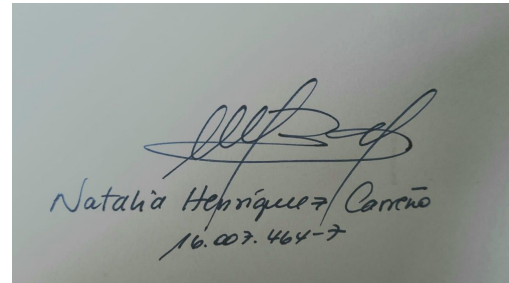 Natalia Henríquez Carreño
16.007.464-7